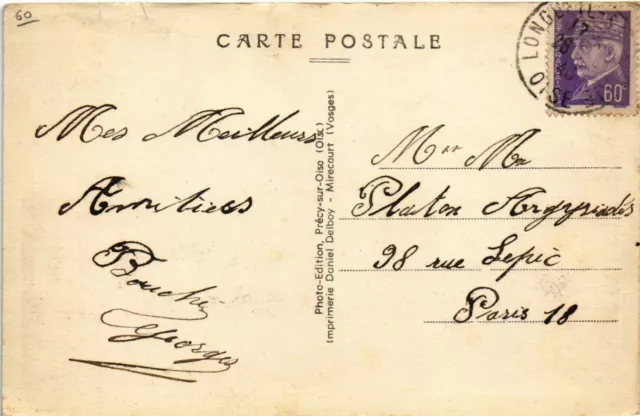 60
CARTE POSTALE
60c
OISE
Mes Meilleurs
Amitiées
Georges
Photo-Edition, Précy-sur-Oise (Oise)
Imprimerie Daniel Delboy - Mirecourt (Vosges)
Platon Argyriadès
98 rue Lepic
Paris 18